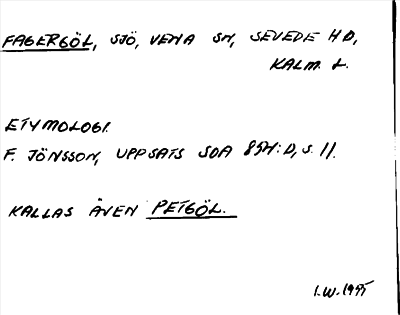 FAGERGÖL, SJÖ, VENA SN, SEVEDE HD,
KALM. L.
ETYMOLOGI.
F. JÖNSSON, UPPSATS SOA 894:D, S. 11.
KALLAS ÄVEN PETGÖL.
I.W. 1995